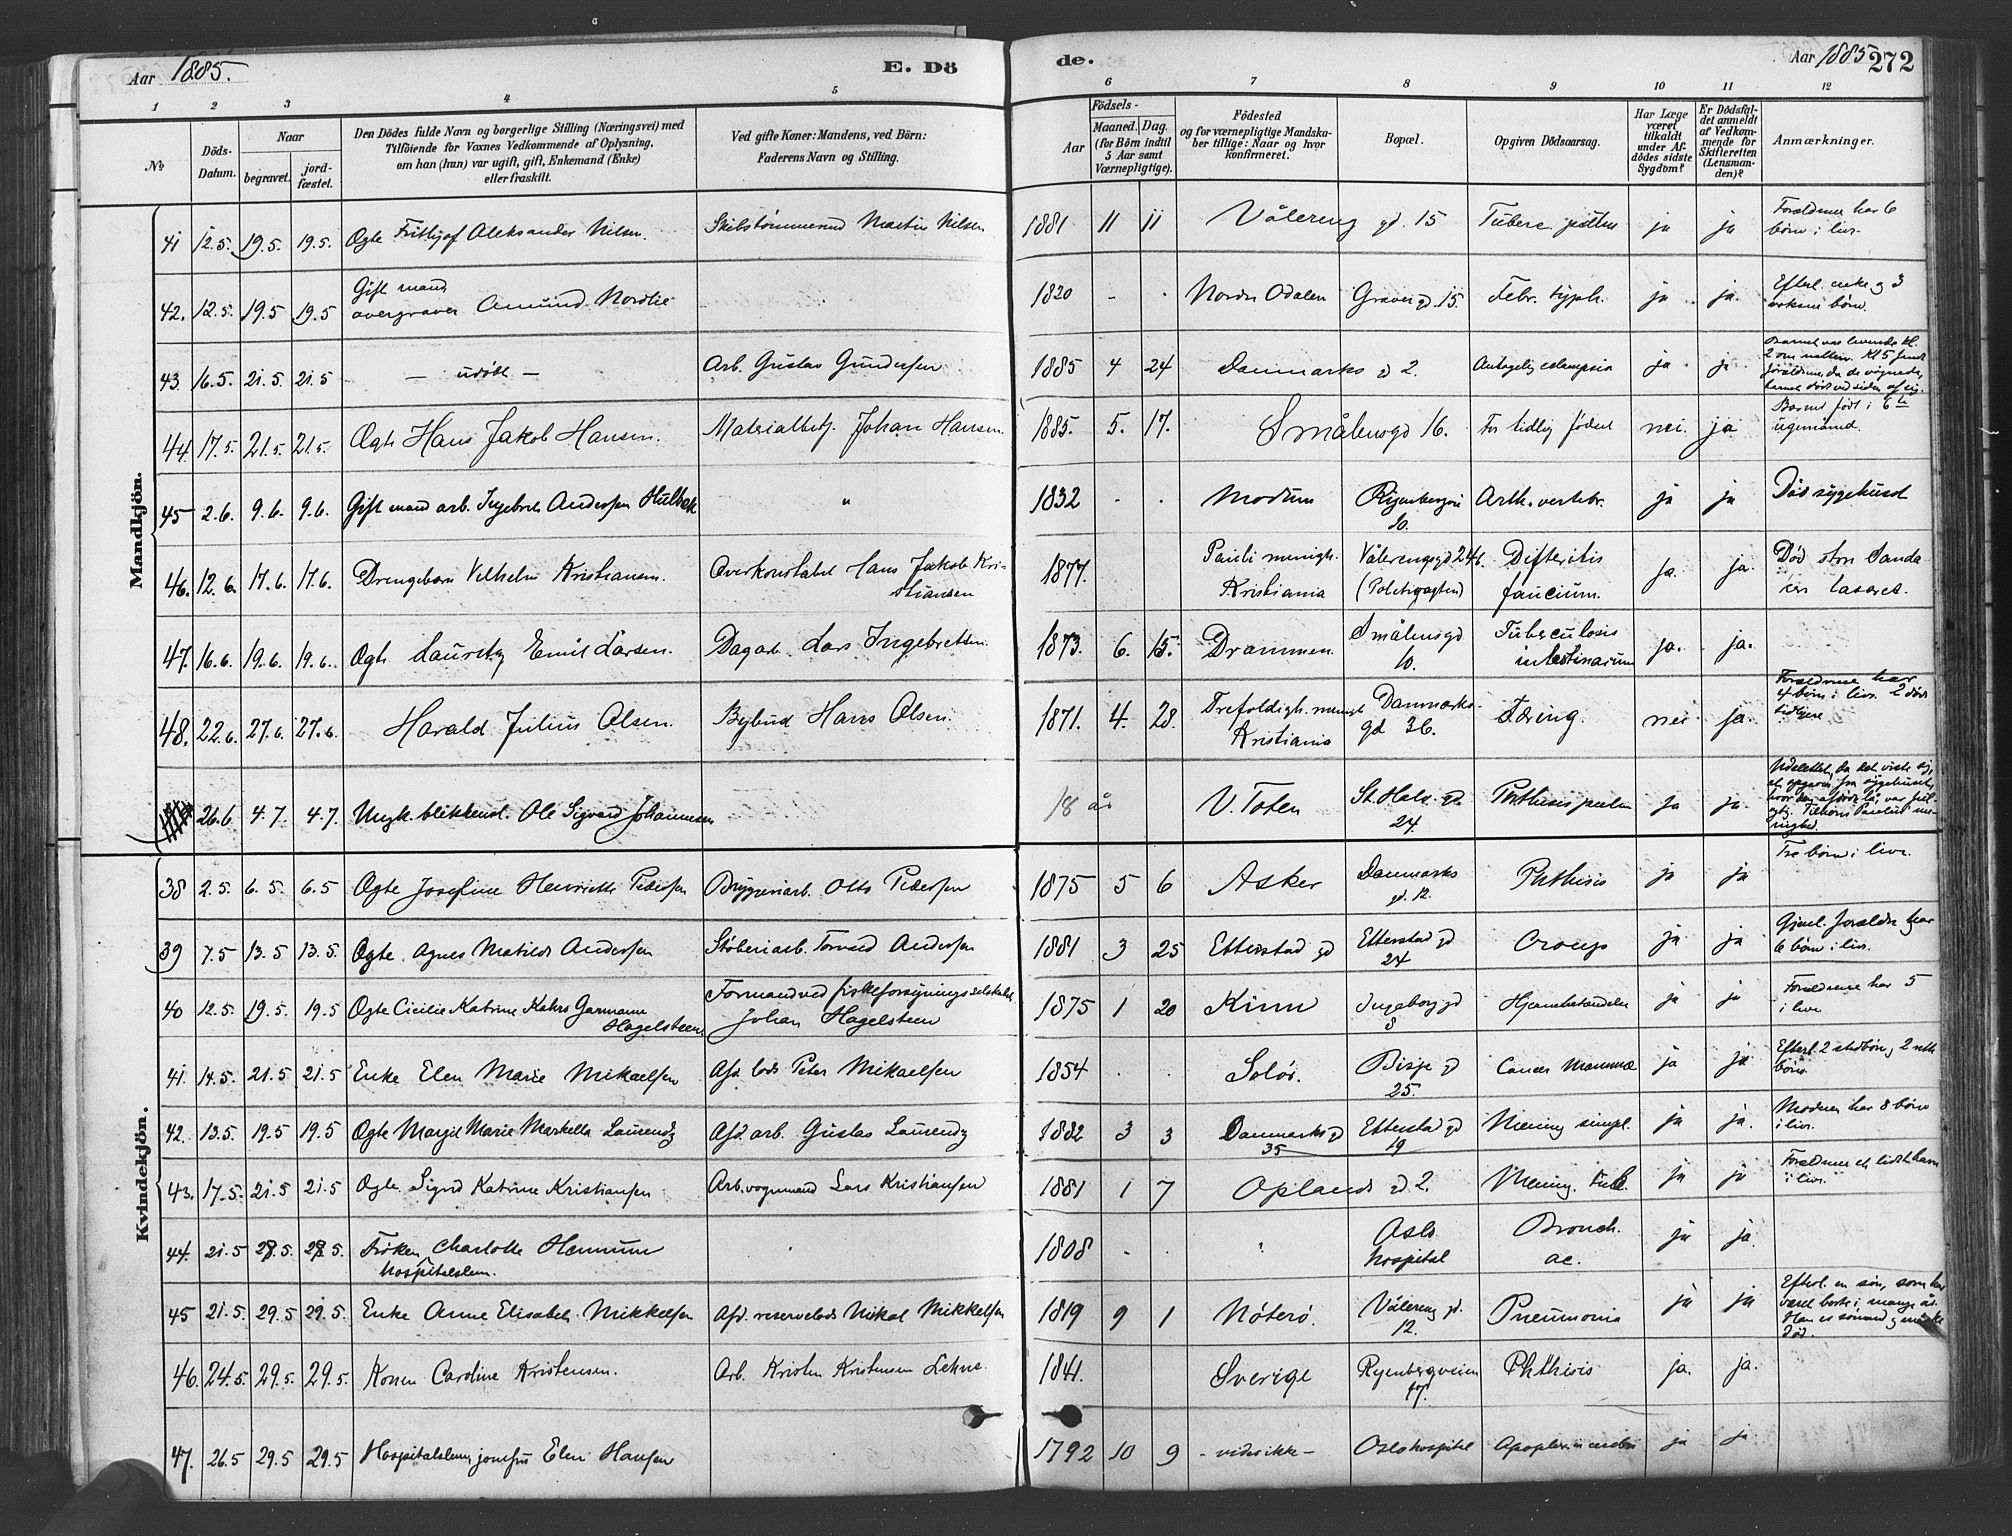 Aar 1885. E. Dö de. Aar 1885 272
1 2 3 4 5 6 7 8 9 10 11 12
No
Döds-Datum.
Naar
begravet.
jord-fæstet.
Den Dödes fulde Navn og borgerlige Stilling (Næringsvei) med
Tilföiende for Voxnes Vedkommende af Oplysning,
om han (hun) var ugift, gift, Enkemand (Enke)
eller fraskilt.
Ved gifte Koner: Mandens, ved Börn:
Faderens Navn og Stilling.
Födsels-
Aar
Maaned. Dag.
(for Börn indtil
5 Aar samt
Værnepligtige).
Födested
og for værnepligtige Mandska-
ber tillige: Naar og hvor
konfirmeret.
Bopæl.
Opgiven Dödsaarsag.
Har Læge
været
tilkaldt
under Af-
dödes sidste
Sygdom?
Er Dödsfal-
det anmeldt
af Vedkom-
mende for
Skifteretten
(Lensman-
den)?
Anmærkninger.
Mandkjön.
41 12.5. 19.5. 19.5. Ægte Frithjof Aleksander Nilsen. Skibstømmermand Martin Nilsen 1881 11 11 Vålereng gd. 15 Tuberc. ja ja Forældrene har 6
børn i live.
42. 12.5. 19.5 19.5 Gift mand
Amund Nordlie 1820 - . Nordre Odalen gd. 15. Febr. typh. ja ja. Efterl. enke og 3
voksne børn.
43. 16.5. 21.5 21.5 — udøbt — Arb. Gustav Gundersen 1885 4 24 Danmarks gd 2. Antagelig eclampsia ja ja Barnet var levende kl.
2 om natten. Kl 5 fandt
forældrene, da de vågnede,
barnet dødt ved siden af sig.
44. 17.5. 21.5. 21.5. Ægte Hans Jakob Hansen. Johan Hansen. 1885. 5. 17. Smålensgd 16. For tidlig fødsel nei. ja Barnet født i 6te
45 2.6. 9.6. 9.6. Gift mand arb. Ingebret Andersen " 1832 . . Modum Ryenbergvei
10. Arth. vertebr. ja ja Død sygehuset
46. 12.6. 17.6. 17.6. Drengebarn Vilhelm Kristiansen. Overkonstabel Hans Jakob Kri-
stiansen 1877. Pauli menigh.
Kristiania Vålerengsgd 24b.
Difteritis
faucium. ja. ja.
47. 16.6. 19.6. 19.6. Ægte Lauritz Emil Larsen. Lars Ingebretsen. 1873. 6. 15. Drammen. Smålensgd
10. Tuberculosis
intestinarum ja. ja.
48. 22.6. 27.6. 27.6. Harald Julius Olsen. Bybud Hans Olsen. 1871. 4. 28. Trefoldigh. menigh
Kristiania Danmarks
gd 36. Tæring. nei ja. Forældrene har
4 børn i live. 2 døde
tidligere
26.6 4.7. 4.7. Ungk. blikkensl. Ole Sigvard Johannesen 18 år V. Toten St. Halv. gd
24. Phthisis pulm ja ja. Udslettet, da det viste sig,
Kvindekjön.
38 2.5. 6.5. 6.5 Ægte Josefine Henriette Pedersen Bryggeriarb. Otto Pedersen 1875 5 6 Asker Danmarks
gd. 12. Phthisis ja ja Tre børn i live.
39 7.5 13.5 13.5. Ægte Agnes Matilde Andersen Støberiarb. Andersen 1881 3 25 Etterstad gd Etterstad gd
24 Croup ja ja forældre har
6 børn i live.
40 12.5. 19.5. 19.5 Ægte Cicilie Katrine Kahrs Garmann
Hagelsteen Formand ved fiskeforsyningsselskabet
Johan Hagelsteen 1875 1 20 Kinn Ingeborg gd
8 Hjernebetændelse ja ja Forældrene har 5
i live
41. 14.5. 21.5 21.5 Enke Elen Marie Mikaelsen Afd. lods Peter Mikaelsen 1854 . . Solør. Bispe gd
25. Cancer Mammæ ja ja Efterl. 2 stedbørn, 2 ætte
børn.
42. 13.5. 19.5 19.5 Ægte Margit Marie Markella Laurendz Afd. arb. Gustav Laurendz 1882 3 3 Danmarks gd
35 Etterstad gd
19 Mening simpl. ja ja. Moderen har 8 børn
i live.
43. 17.5. 21.5 21.5 Ægte Sigrid Katrine Kristiansen Arb. vognmand Lars Kristiansen 1881 1 7 Oplands gd 2. Mening. tub. ja ja Forældrene et lidet barn
i live.
44. 21.5 28.5. 28.5. Frøken Charlotte Hemmum
hospitalslem. . 1808 . . " Oslo
hospital Bronch.
ac. ja ja
45 21.5 29.5 29.5. Enke Anne Elisabeth Mikkelsen Afd. reservelods Nikol Mikkelsen 1819 9 1 Nøterø. Vålereng gd.
12. Pneumonia ja ja Efterl. en søn, som har
været borte i mange år.
Han er sømand og måske
død.
46. 24.5. 29.5. 29.5. Konen Caroline Kristensen. Arb. Kristen Kristensen 1841. Sverige Ryenbergveien
Phthisis ja. ja.
47. 26.5 29.5 29.5 Hospitalslem, jomfru Elen Hansen 1792 10 9 - vides ikke - Oslo hospital Apoplexia cerebri ja ja